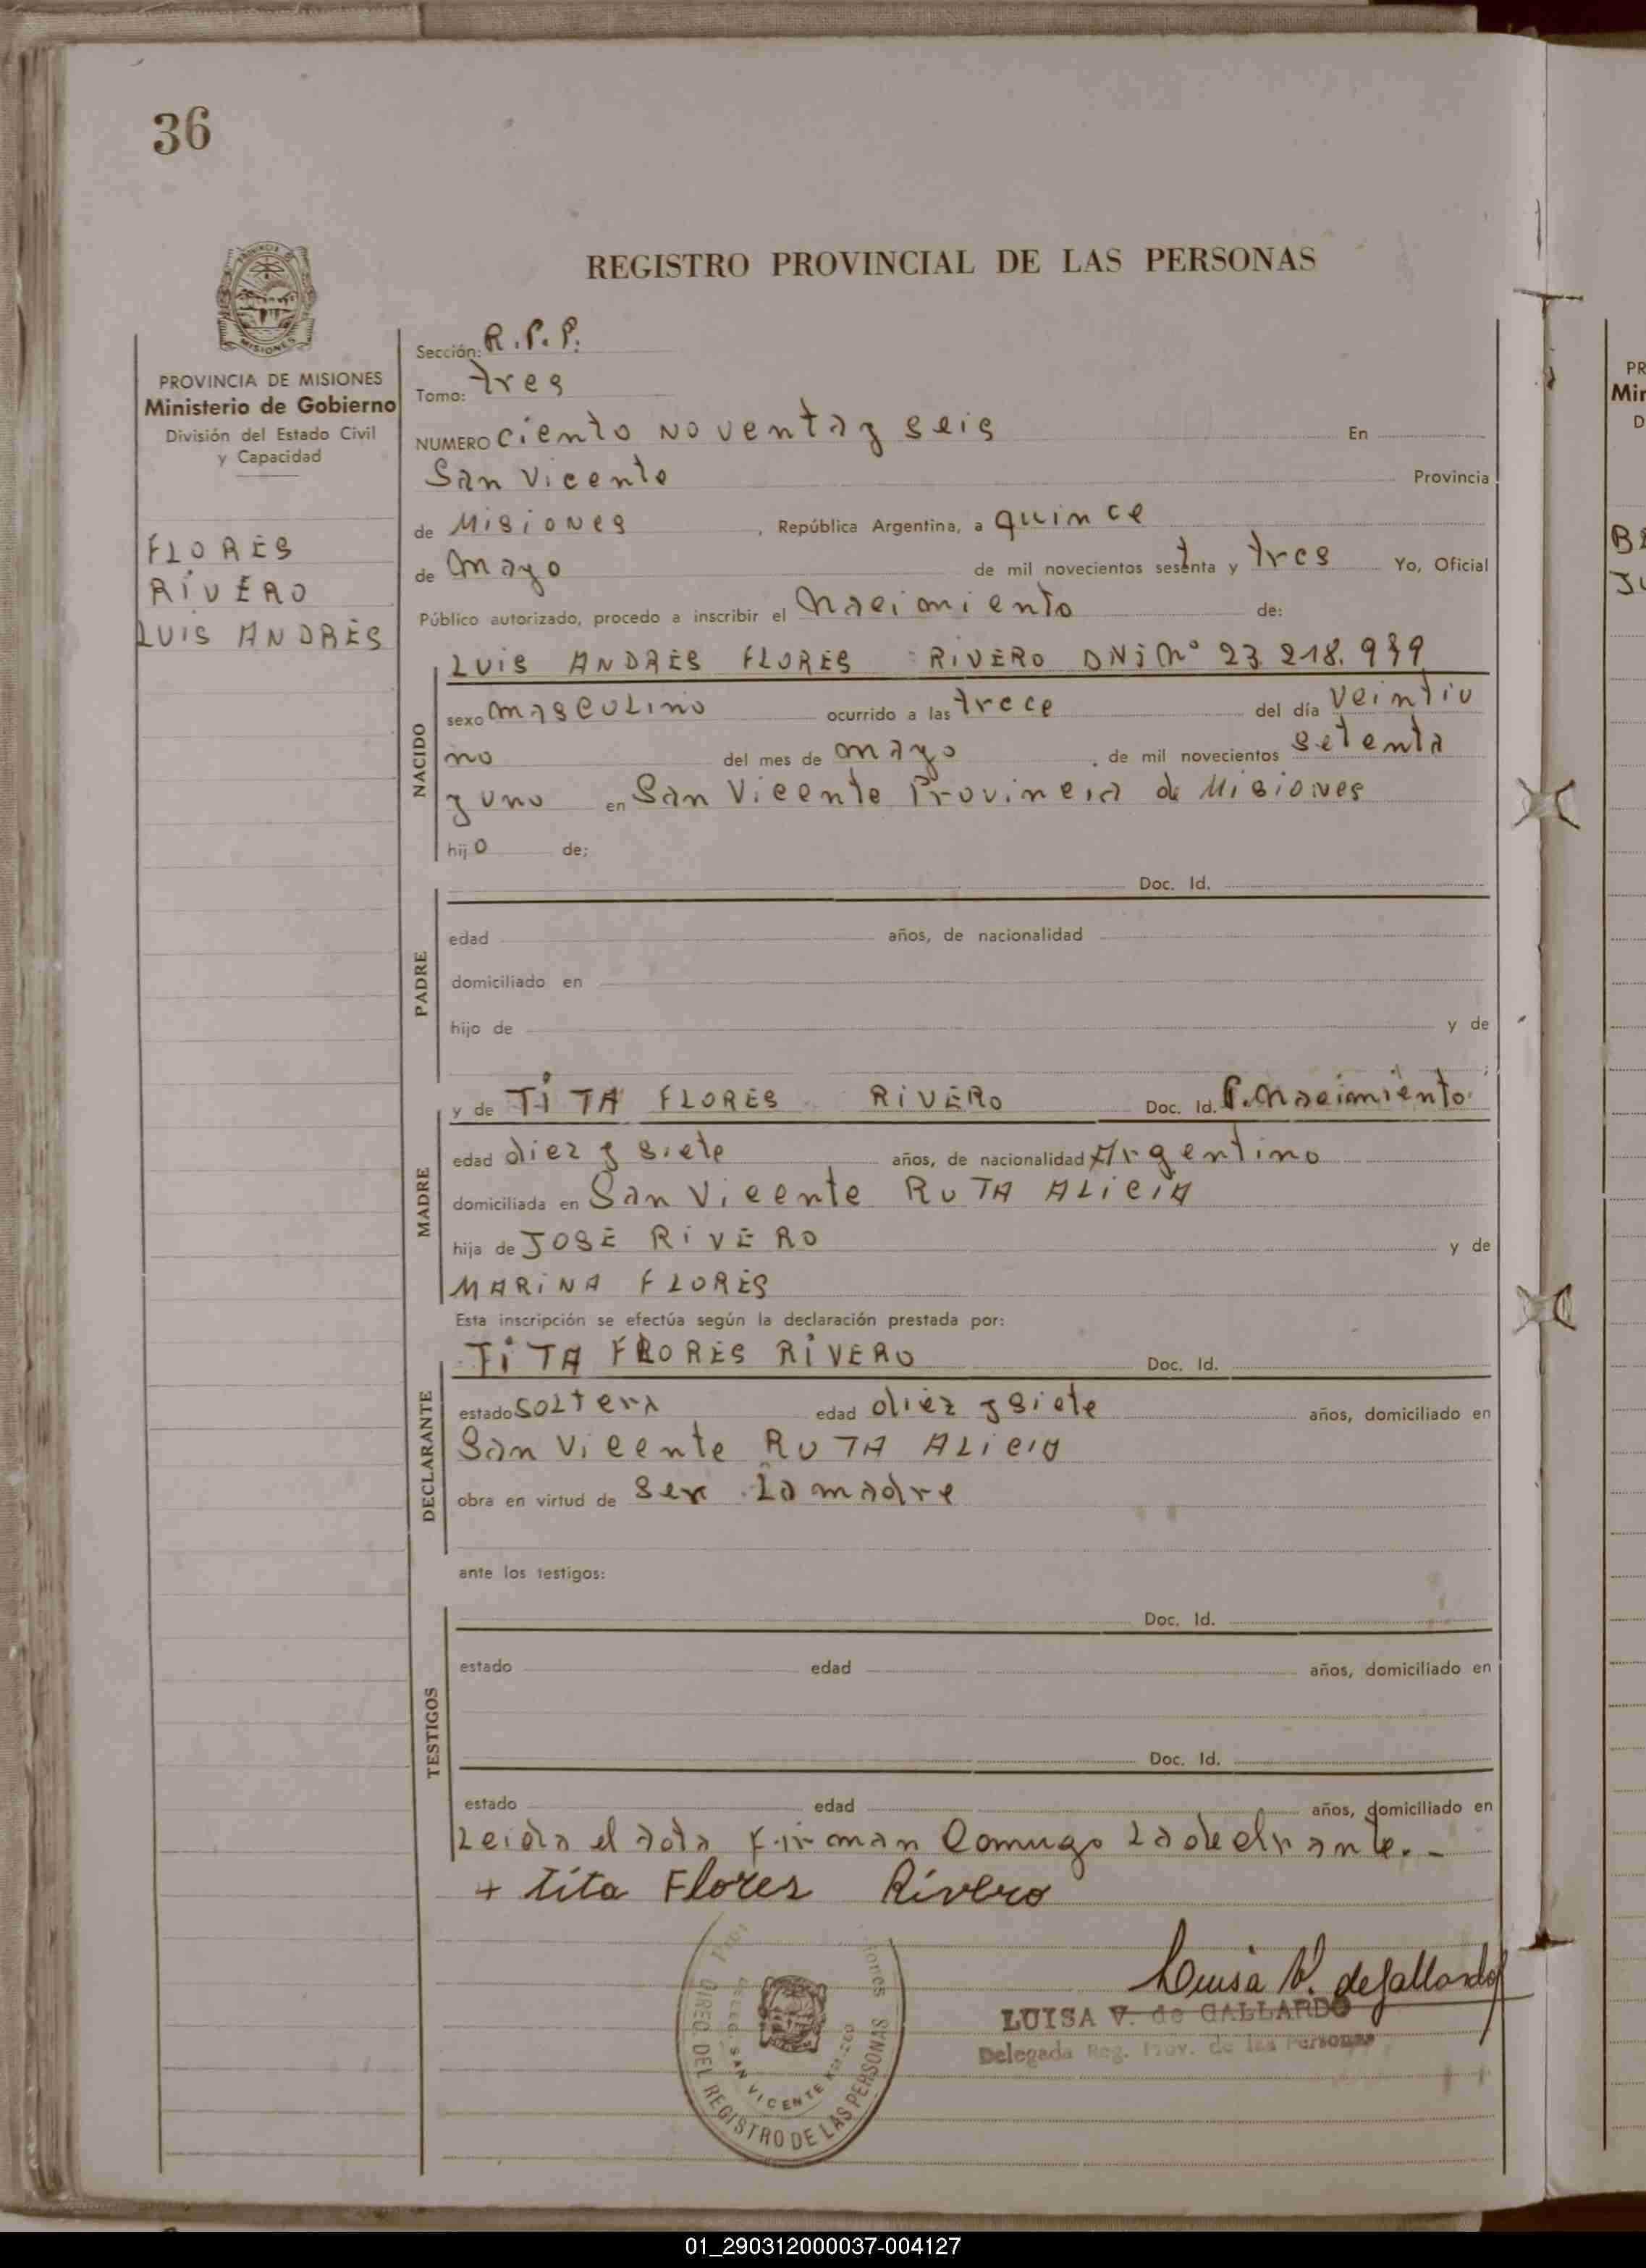 36
REGISTRO PROVINCIAL DE LAS PERSONAS
MISIONES
PROVINCIA DE MISIONES
Ministerio de Gobierno
División del Estado Civil
y Capacidad
FLORES
RIVERO
LUIS ANDRES
Sección: R.P.P.
Tomo: tres
NUMERO ciento noventa y seis En
San Vicente Provincia
de Misiones, República Argentina, a quince
de mayo de mil novecientos sesenta y tres Yo, Oficial
Público autorizado, procedo a inscribir el nacimiento de:
NACIDO
LUIS ANDRES FLORES RIVERO DNI Nº 23.218.
sexo masculino ocurrido a las trece del día veintiu
no del mes de mayo, de mil novecientos setenta
y uno en San Vicente Provincia de Misiones
hijo de;
PADRE
Doc. Id.
edad años, de nacionalidad
domiciliado en
hijo de y de
;
MADRE
y de TITA FLORES RIVERO Doc. Id. P. Nacimiento
edad diez y siete años, de nacionalidad Argentino
domiciliada en San Vicente RUTA ALICIA
hija de JOSE RIVERO y de
MARINA FLORES
Esta inscripción se efectúa según la declaración prestada por:
DECLARANTE
TITA FLORES RIVERO Doc. Id.
estado soltera edad diez y siete años, domiciliado en
San Vicente RUTA ALICIA
obra en virtud de ser la madre
ante los testigos:
TESTIGOS
Doc. Id.
estado edad años, domiciliado en
Doc. Id.
estado edad años, domiciliado en
Leida el acta firman comugo la declrante.-
+ Tita Flores Rivero
Luisa V. de Gallardo
LUISA V. de GALLARDO
Delegada Reg. Prov. de las Personas
DIREC. DEL REGISTRO DE LAS PERSONAS
DELEG. SAN VICENTE
PR
Mir
D
01_290312000037-004127